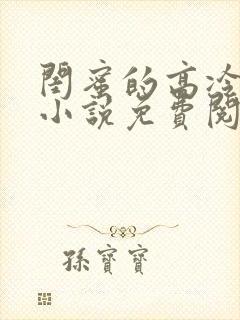 閨蜜的高冷
小說免費閱
孫寶寶